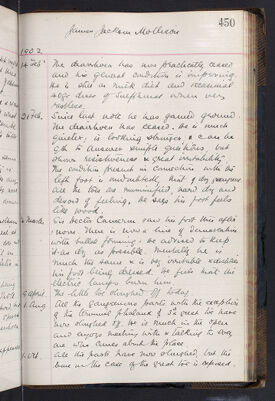 450
James Jackson Mollison
1902
14 Feb. The diarrhoea has now practically ceased
and his general condition is improving.
He is still on milk diet and occasional
40gr doses of Sulphonal when very
restless.
21 Feb. Since last note he has gained ground.
The diarrhoea has ceased. He is much
quieter, is looking stronger & can be
got to answer simple questions, but
shows resistiveness & great irritability.
The condition present in connection with his
left foot is undoubtedly that of dry gangrene.
All the toes are mummified, hard dry and
devoid of feeling. He says his foot feels
like wood.
March. Sir Hector Cameron saw his foot this after
noon. There is now a line of demarcation
with bullae forming. He advised to keep
it as dry as possible. Mentally he is
much the same & is very irritable
his foot being dressed. He feels that the
electric lamps burn him.
9 April. The little toe sloughed off today
1 Aug. All the gangrenous parts with the exception
of the terminal phalanx of great toe have
now sloughed off. He is much in the open
and enjoys meeting with & talking to any
one who comes about the place.
1 Oct. All the parts have now sloughed, but the
bone in the case of the great toe is exposed.